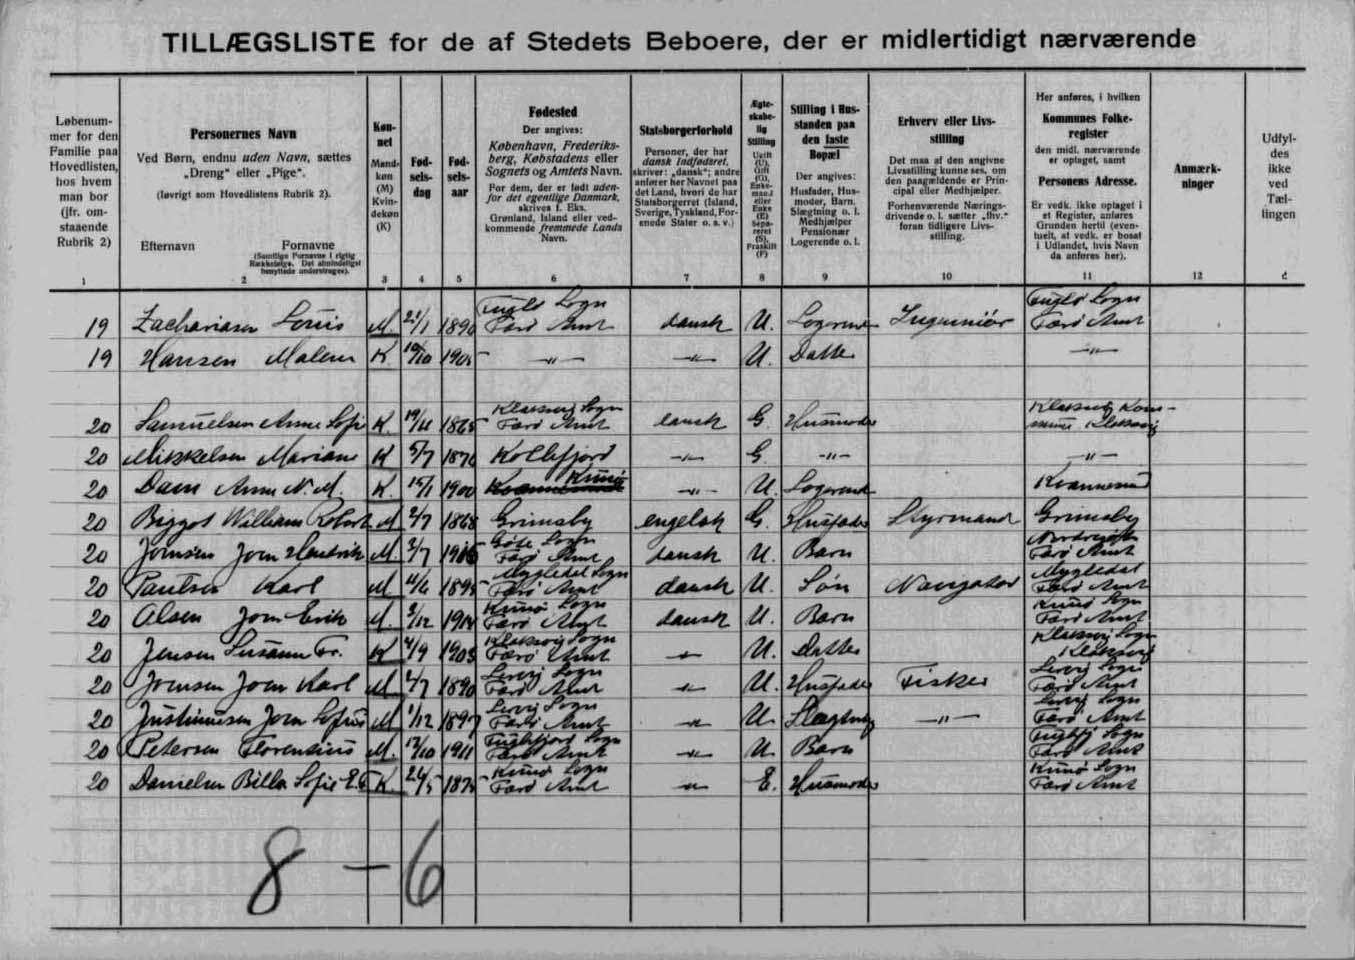 TILLÆGSLISTE for de af Stedets Beboere, der er midlertidigt nærværende
Løbenum-
mer for den
Familie paa
Hovedlisten,
hos hvem
man bor
(jfr. om-
staaende
Rubrik 2)
1
Personernes Navn
Ved Børn, endnu uden Navn, sættes
„Dreng“ eller „Pige“.
(Iøvrigt som Hovedlistens Rubrik 2).
Efternavn Fornavne
(Samtlige Fornavne i rigtig
Rækkefølge. Det almindeligst
benyttede understreges).
2
Køn-
net
Mand-
køn
(M)
Kvin-
dekøn
(K)
3
Fød-
sels-
dag
4
Fød-
sels-
aar
5
Fødested
Der angives:
København, Frederiks-
berg, Købstadens eller
Sognets og Amtets Navn.
For dem, der er født uden-
for det egentlige Danmark,
skrives f. Eks.
Grønland, Island eller ved-
kommende fremmede Lands
Navn.
6
Statsborgerforhold
Personer, der har
dansk Indfødsret,
skriver: „dansk“; andre
anfører her Navnet paa
det Land, hvori de har
Statsborgerret (Island,
Sverige, Tyskland, For-
enede Stater o. s. v.)
7
Ægte-
skabe-
lig
Stilling
Ugift
(U),
Gift
(G),
Enke-
mand
eller
Enke
(E)
Sepa-
reret
(S),
Fraskilt
(F)
8
Stilling i Hus-
standen paa
den faste
Bopæl
Der angives:
Husfader, Hus-
moder, Barn,
Slægtning o. l.
Medhjælper
Pensionær
Logerende o. l.
9
Erhverv eller Livs-
stilling
Det maa af den angivne
Livsstilling kunne ses, om
den paagældende er Prin-
cipal eller Medhjælper.
Forhenværende Nærings-
drivende o. l. sætter „fhv.“
foran tidligere Livs-
stilling.
10
Her anføres, i hvilken
Kommunes Folke-
register
den midl. nærværende
er optaget, samt
Personens Adresse.
Er vedk. ikke optaget i
et Register, anføres
Grunden hertil (even-
tuelt, at vedk. er bosat
i Udlandet, hvis Navn
da anføres her).
11
Anmærk-
ninger
12
Udfyl-
des
ikke
ved
Tæl-
lingen
d
19 Zachariasen Louis M. 21/1 1890 Fuglø Sogn Færø Amt dansk U. Logerende Ingeniør Fuglø Sogn Færø Amt
19 Hansen Malene K. 10/10 1905 –„– –„– U. Datter –„–
20 Samuelsen Anne Sofie K. 19/11 1865 Klaksvig Sogn Færø Amt dansk G. Husmoder Klaksvig Kommune Klaksvig
20 Mikkelsen Mariane K 5/7 1876 Kollefjord –„– G. –„– –„–
20 Dam Anne N. M. K. 15/1 1900 Kunø –„– U. Logerende Kvannesund
20 Biggot William Robert M 2/7 1868 Grimsby engelsk G. Husfader Styrmand Grimsby
20 Joensen Joen Hendrik M. 3/7 Gøte Sogn Færø Amt dansk U. Barn Færø Amt
20 Paulsen Karl M 11/6 1895 Mygledal Sogn Færø Amt dansk U. Søn Navigatør Mygledal Færø Amt
20 Olsen Jon Erik M. 2/12 1914 Kunø Sogn Færø Amt dansk U. Barn Kunø Sogn Færø Amt
20 Jensen Susanne Fr. K 4/9 1905 Klaksvig Sogn Færø Amt –„– U. Datter Klaksvig Sogn Klaksvig
20 Joensen Joen Karl M 4/7 1890 Lervig Sogn Færø Amt –„– U. Husfader Fisker Lervig Sogn Færø Amt
20 Justinussen Joen Sofus M 1/12 1897 Lervig Sogn Færø Amt –„– U Slægtning –„– Lervig Sogn Færø Amt
20 Petersen Florentius M. 12/10 1911 Fuglefjord Sogn Færø Amt –„– U. Barn Fuglefj Sogn Færø Amt
20 Danielsen Billa Sofie E. K. 24/5 1875 Kunø Sogn Færø Amt –„– E. Husmoder Kunø Sogn Færø Amt
8 – 6